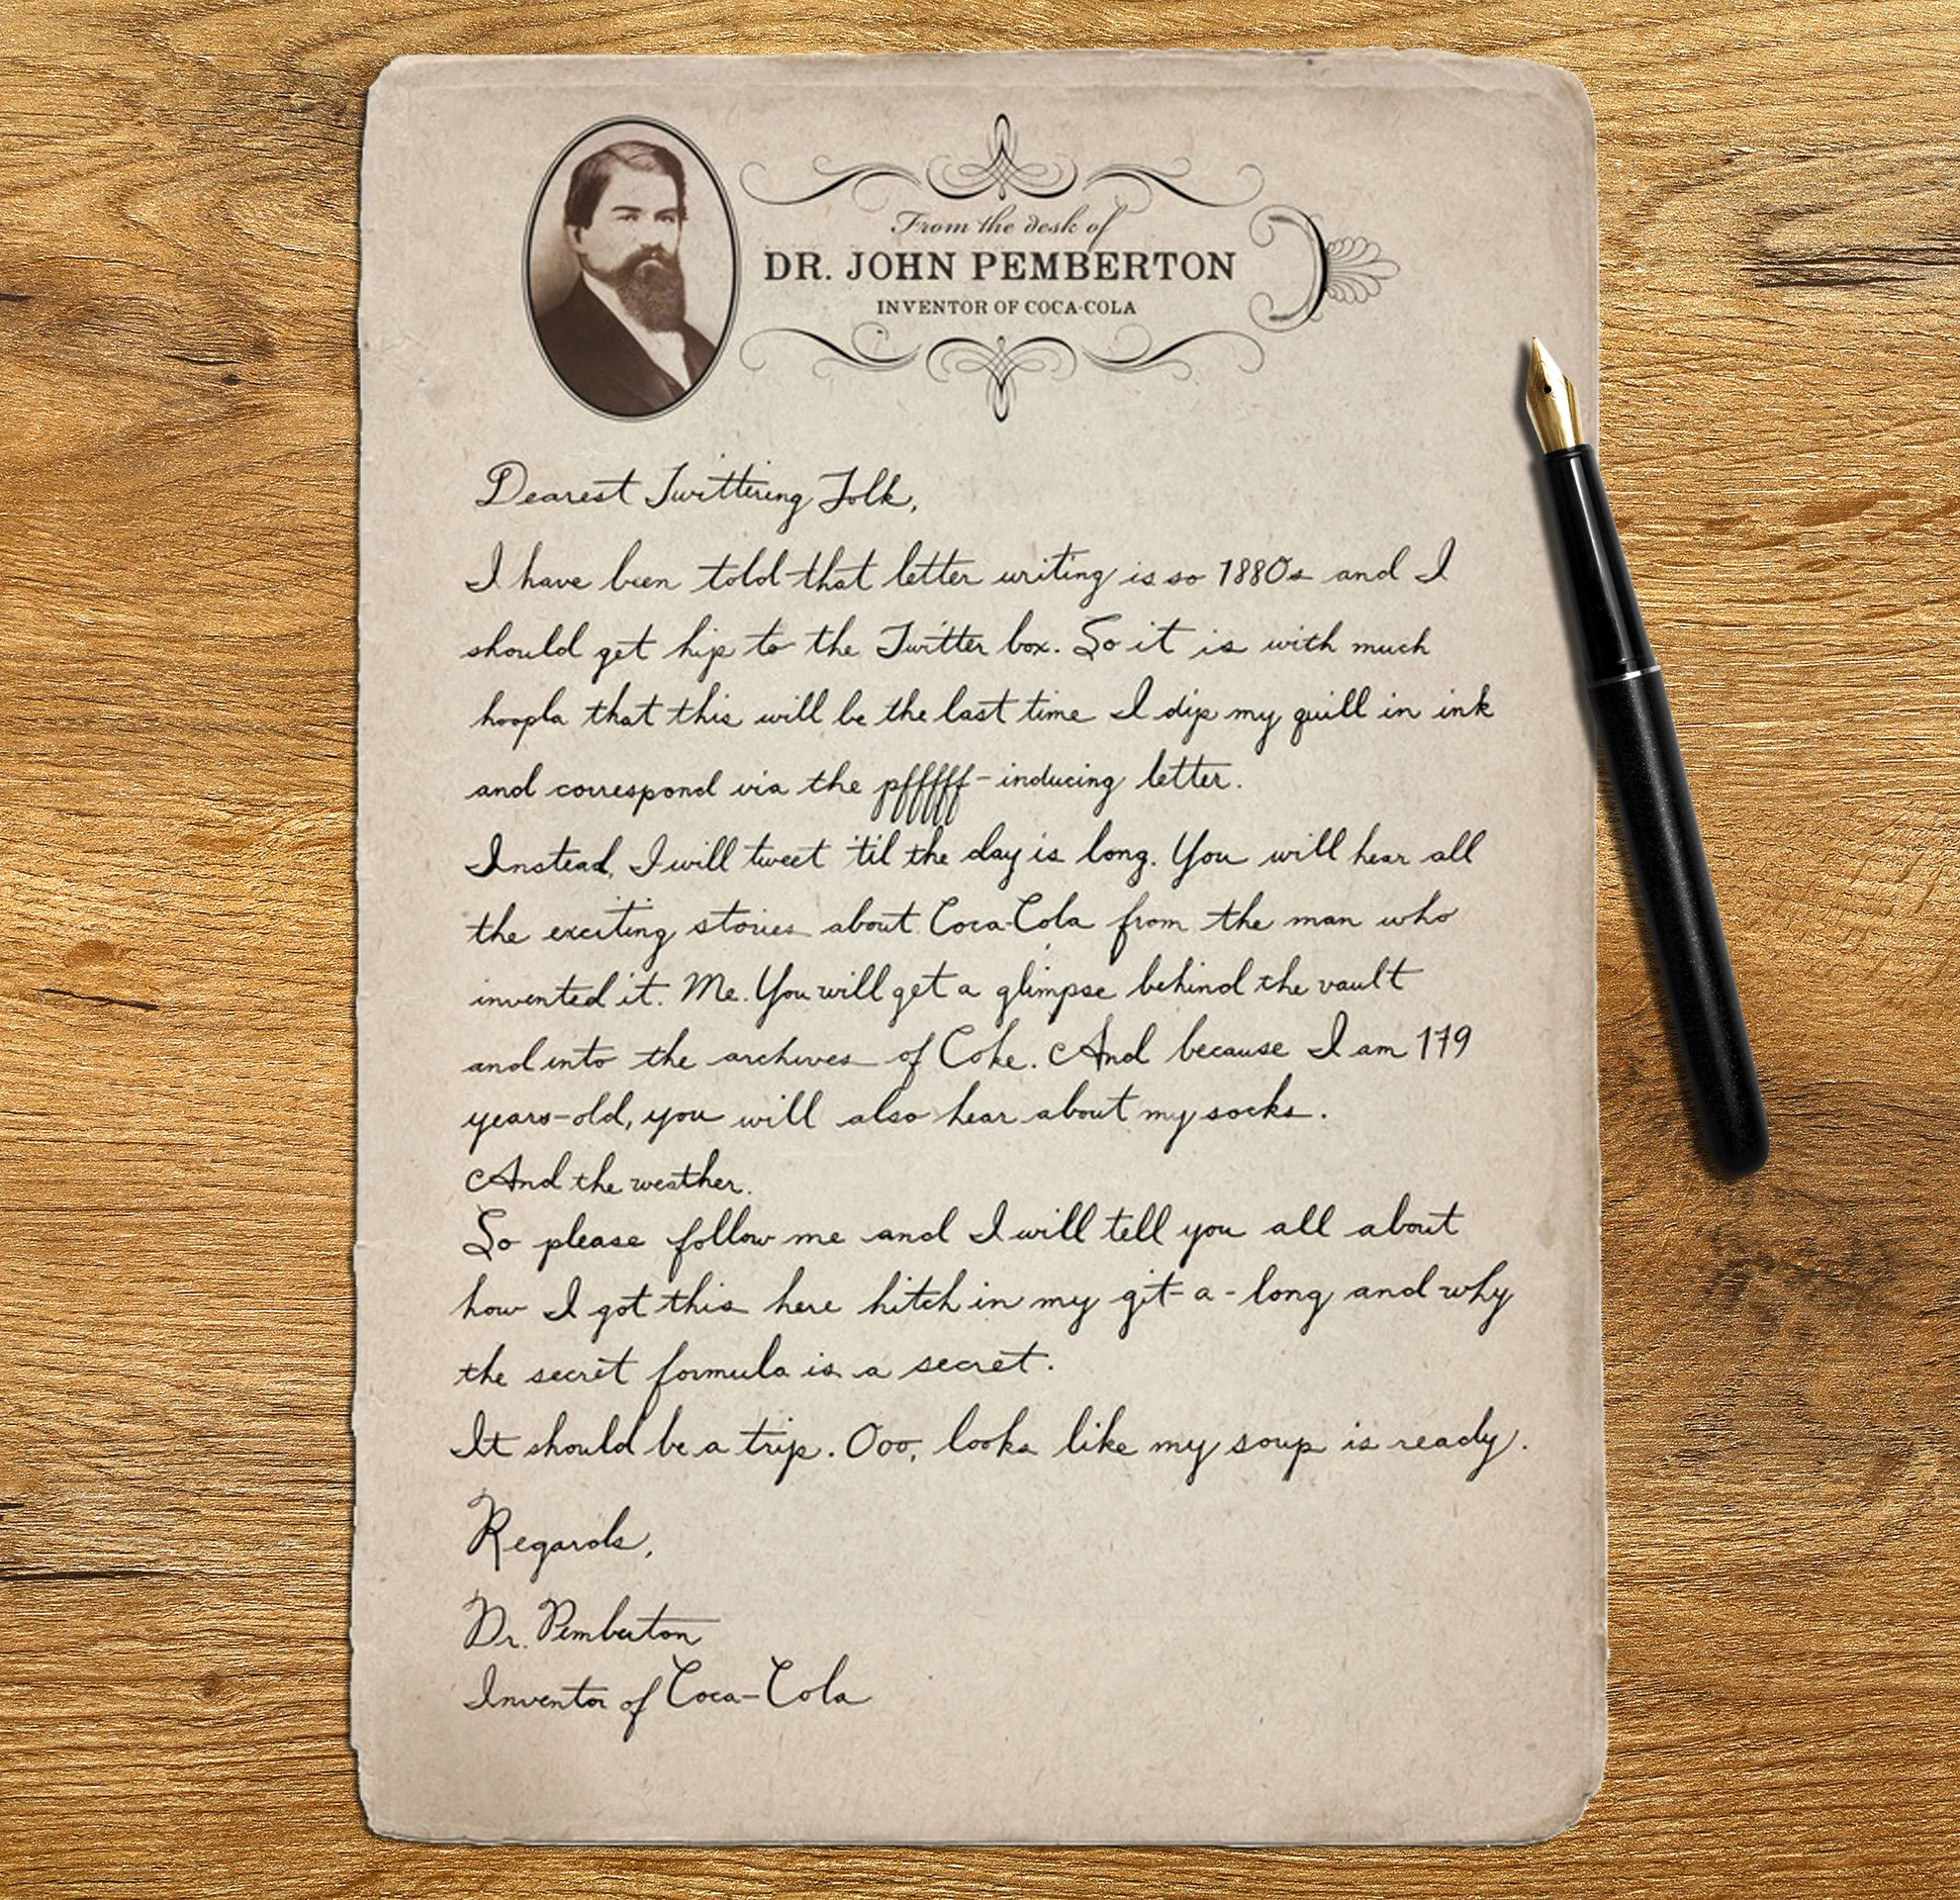 From the desk of
DR. JOHN PEMBERTON
INVENTOR OF COCA-COLA
Dearest Twittering Folk,
I have been told that letter writing is so 1880s and I
should get hip to the Twitter box. So it is with much
hoopla that this will be the last time I dip my quill in ink
and correspond via the pffffff-inducing letter.
Instead, I will tweet 'til the day is long. You will hear all
the exciting stories about Coca-Cola from the man who
invented it. Me. You will get a glimpse behind the vault
and into the archives of Coke. And because I am 179
years-old, you will also hear about my socks.
And the weather.
So please follow me and I will tell you all about
how I got this here hitch in my git-a-long and why
the secret formula is a secret.
It should be a trip. Ooo, looks like my soup is ready.
Regards,
Dr. Pemberton
Inventor of Coca-Cola